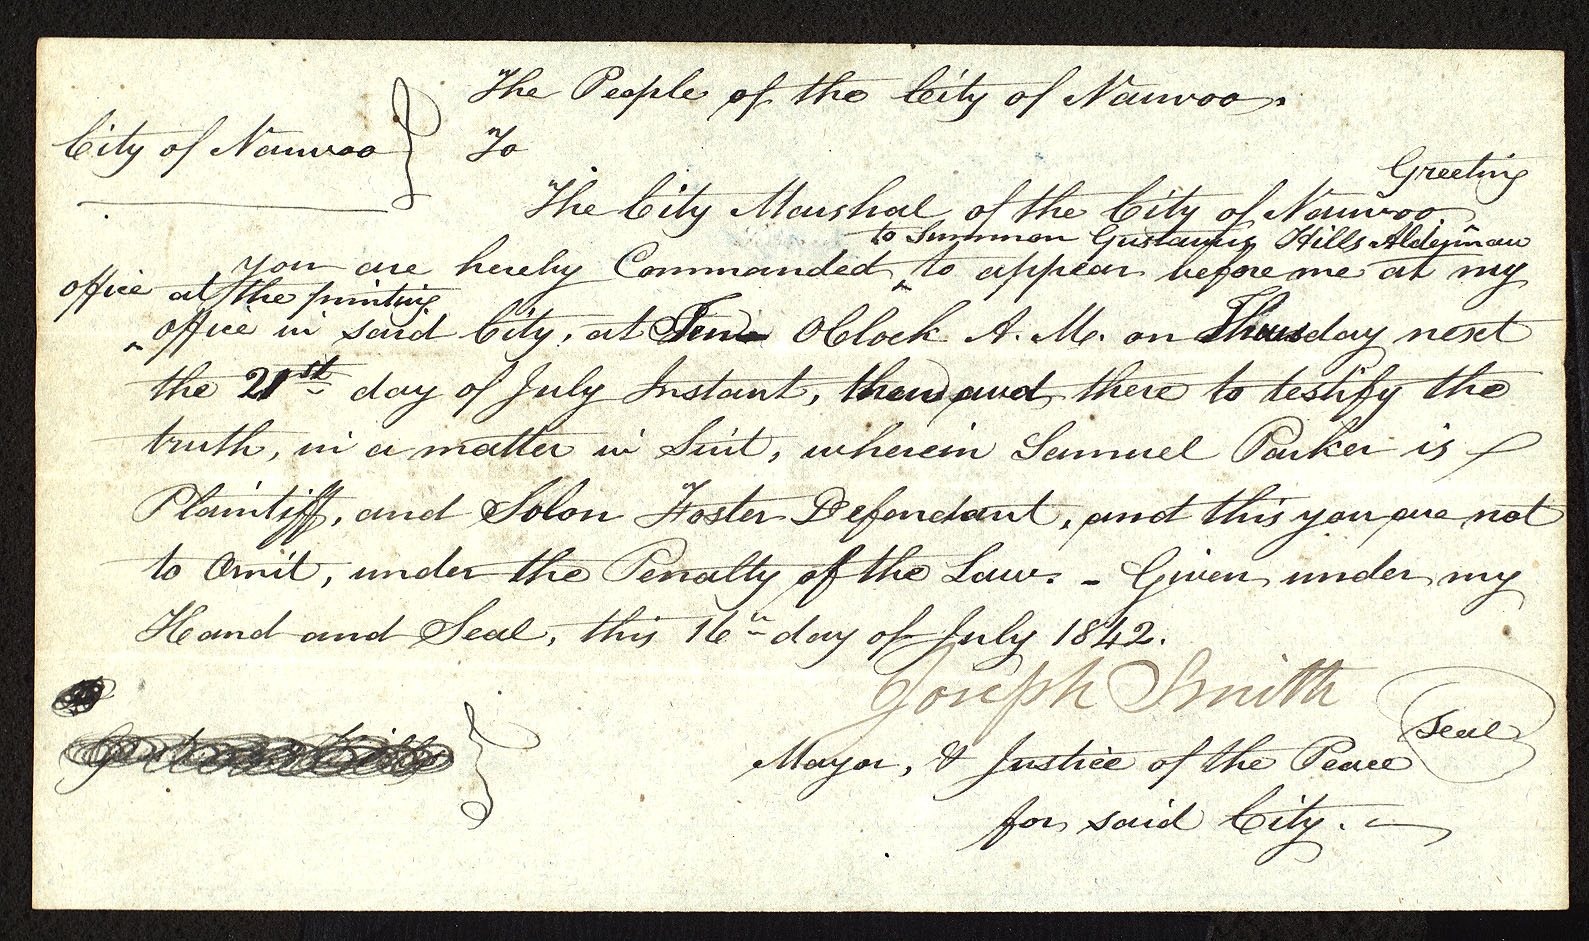 The People of the City of Nauvoo.
City of Nauvoo } To
Greeting
The City Marshal of the City of Nauvoo
to Summon Gustavus Hills Alderman
You are hereby Commanded ^ to appear before me at my
office at the printing
^ office in said City, at Ten O Clock A. M. on Thursday next
the 21st day of July Instant, then and there to testify the
truth, in a matter in Suit, wherein Samuel Parker is
Plaintiff, and Solon Foster Defendant, and this you are not
to Omit, under the Penalty of the Law. - Given under my
Hand and Seal, this 16th day of July 1842.
Joseph Smith
Seal
Gustavus Hills }
Mayor, & Justice of the Peace
for said City. —